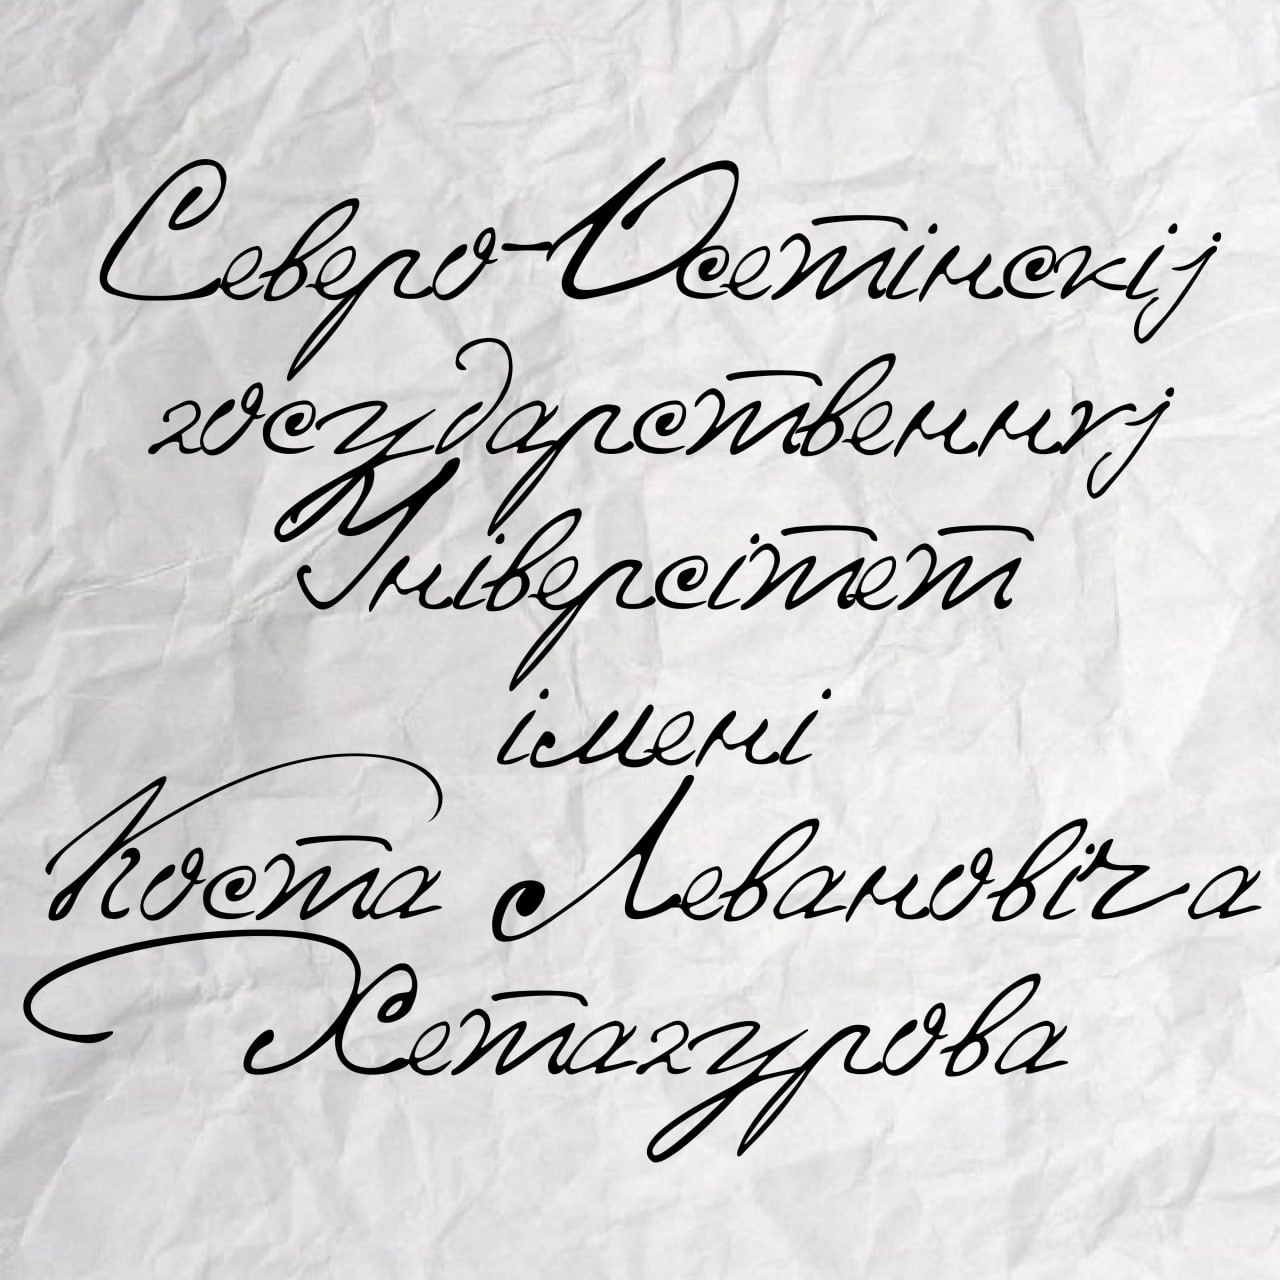 Северо-Осетінскіј
государственнѵј
Універсітет
імені
Коста Левановіча
Хетагурова